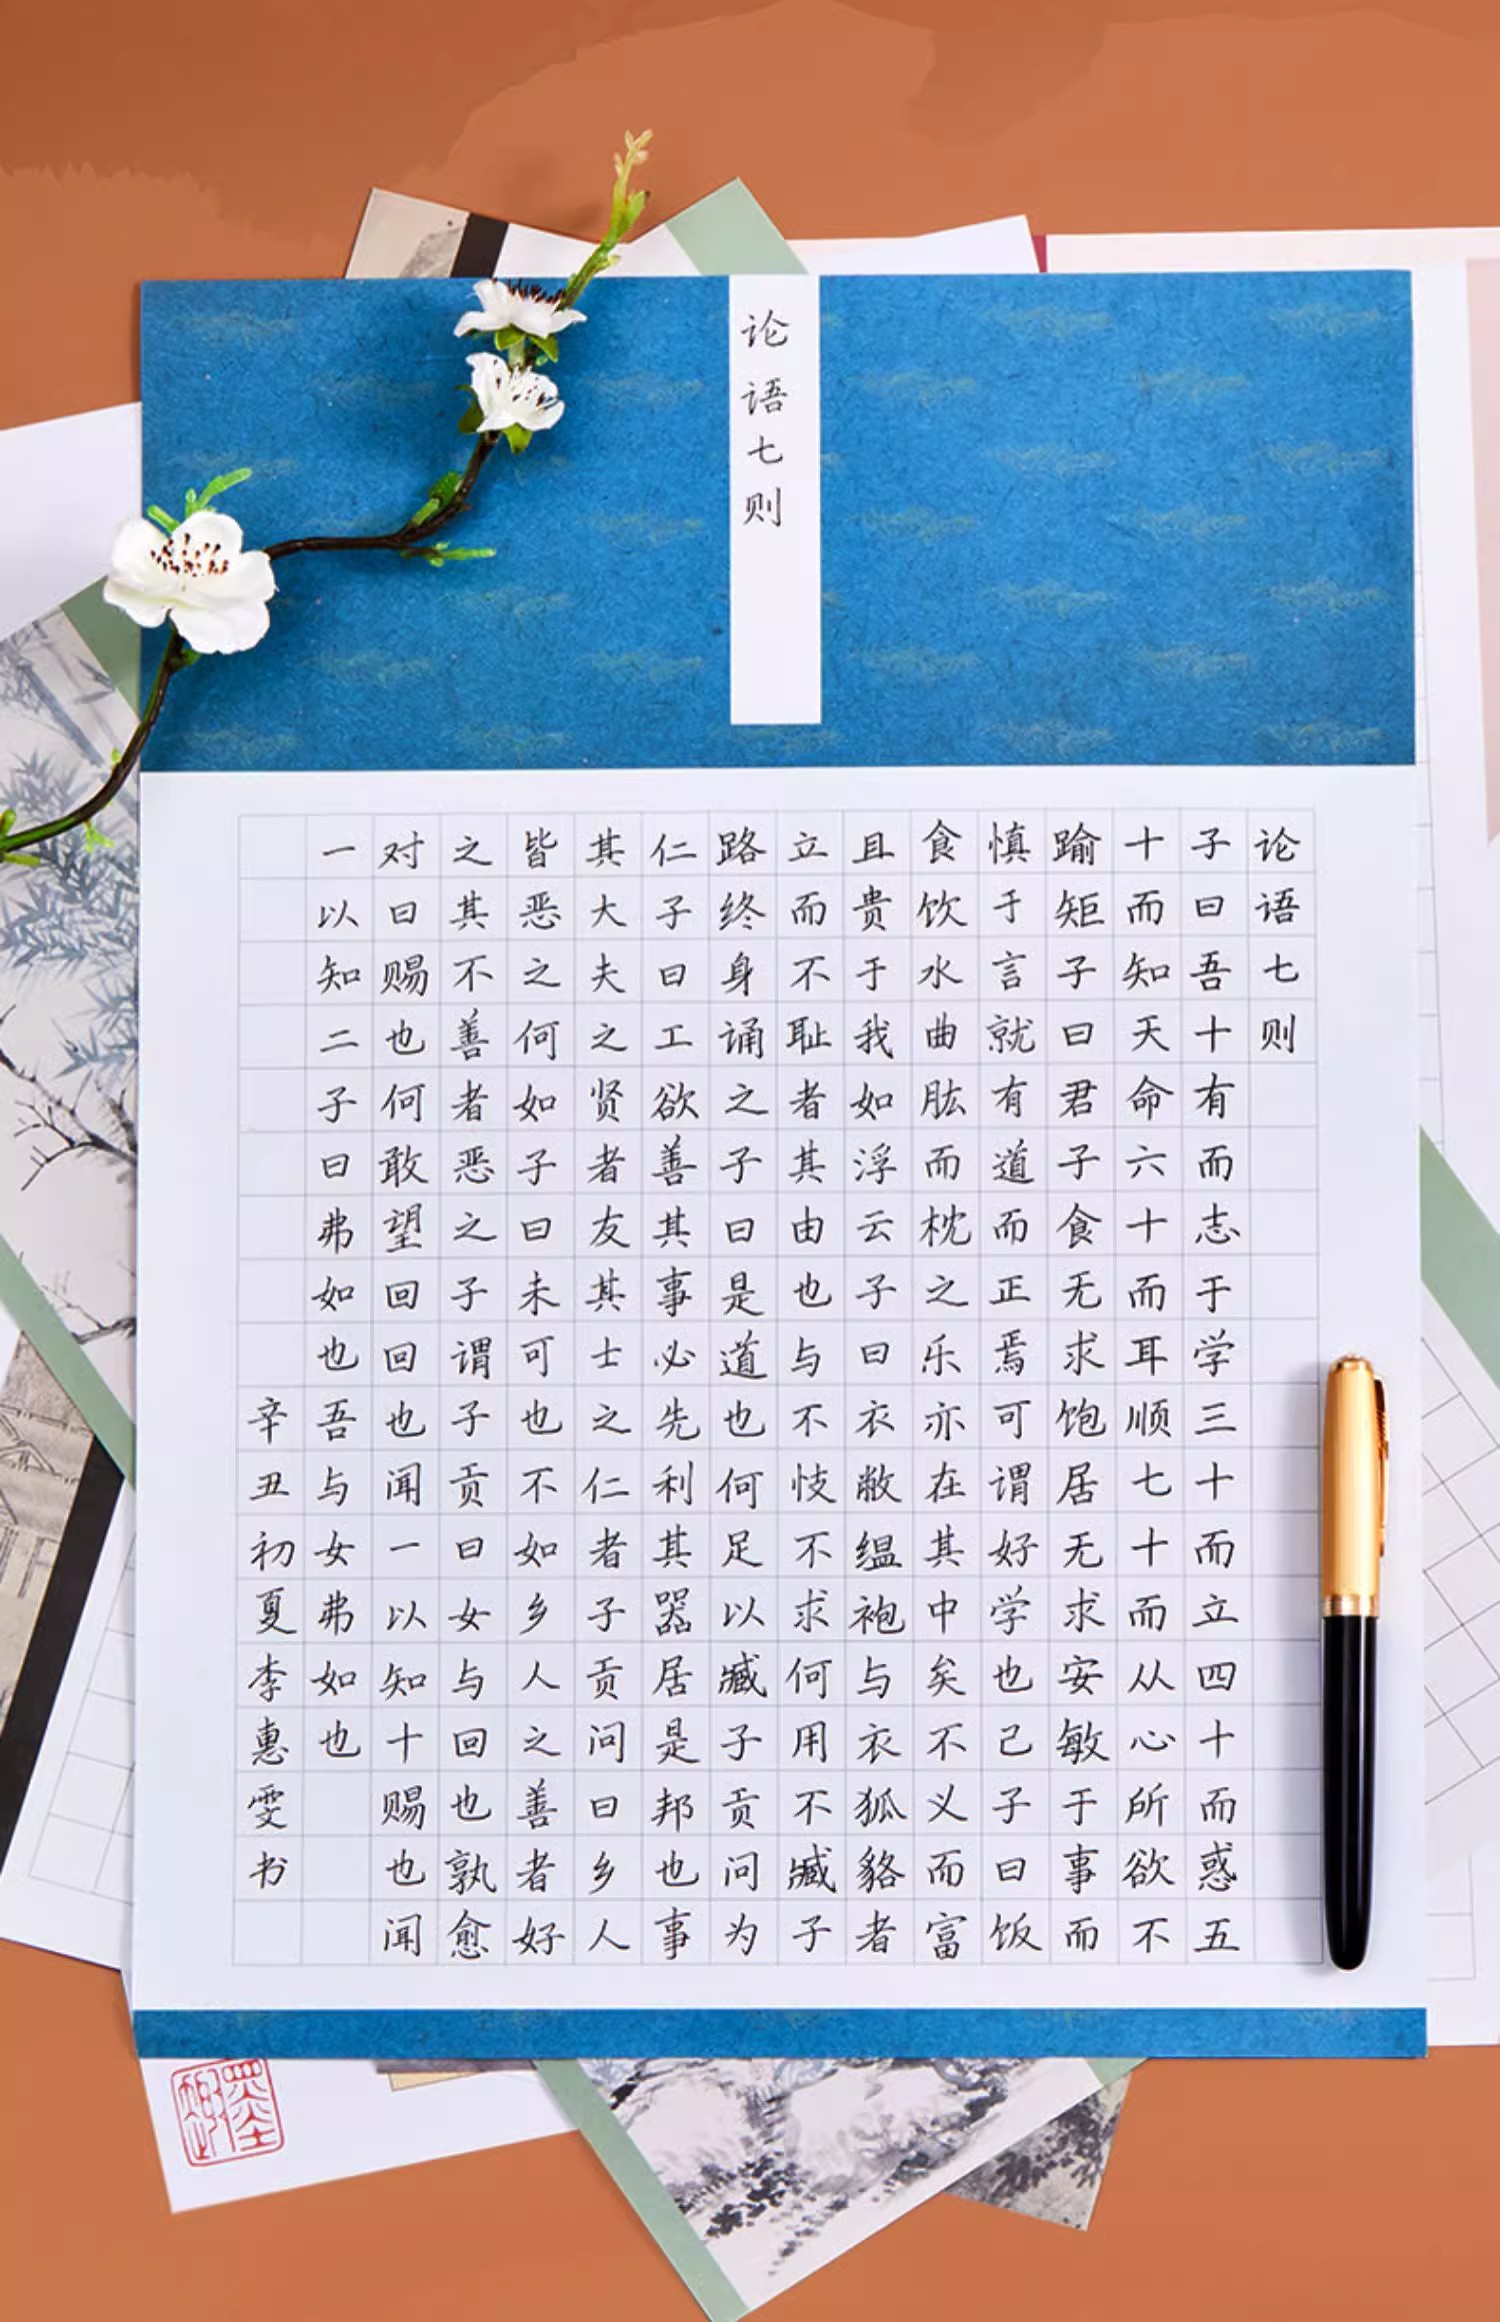 论语七则
论语七则
子曰吾十有而志于学三十而立四十而惑五
十而知天命六十而耳顺七十而从心所欲不
踰矩子曰君子食无求饱居无求安敏于事而
慎于言就有道而正焉可谓好学也已子曰饭
食饮水曲肱而枕之乐亦在其中矣不义而富
且贵于我如浮云子曰衣敝缊袍与衣狐貉者
立而不耻者其由也与不忮不求何用不臧子
路终身诵之子曰是道也何足以臧子贡问为
仁子曰工欲善其事必先利其器居是邦也事
其大夫之贤者友其士之仁者子贡问曰乡人
皆恶之何如子曰未可也不如乡人之善者好
之其不善者恶之子谓子贡曰女与回也孰愈
对曰赐也何敢望回回也闻一以知十赐也闻
一以知二子曰弗如也吾与女弗如也
辛丑初夏李惠雯书